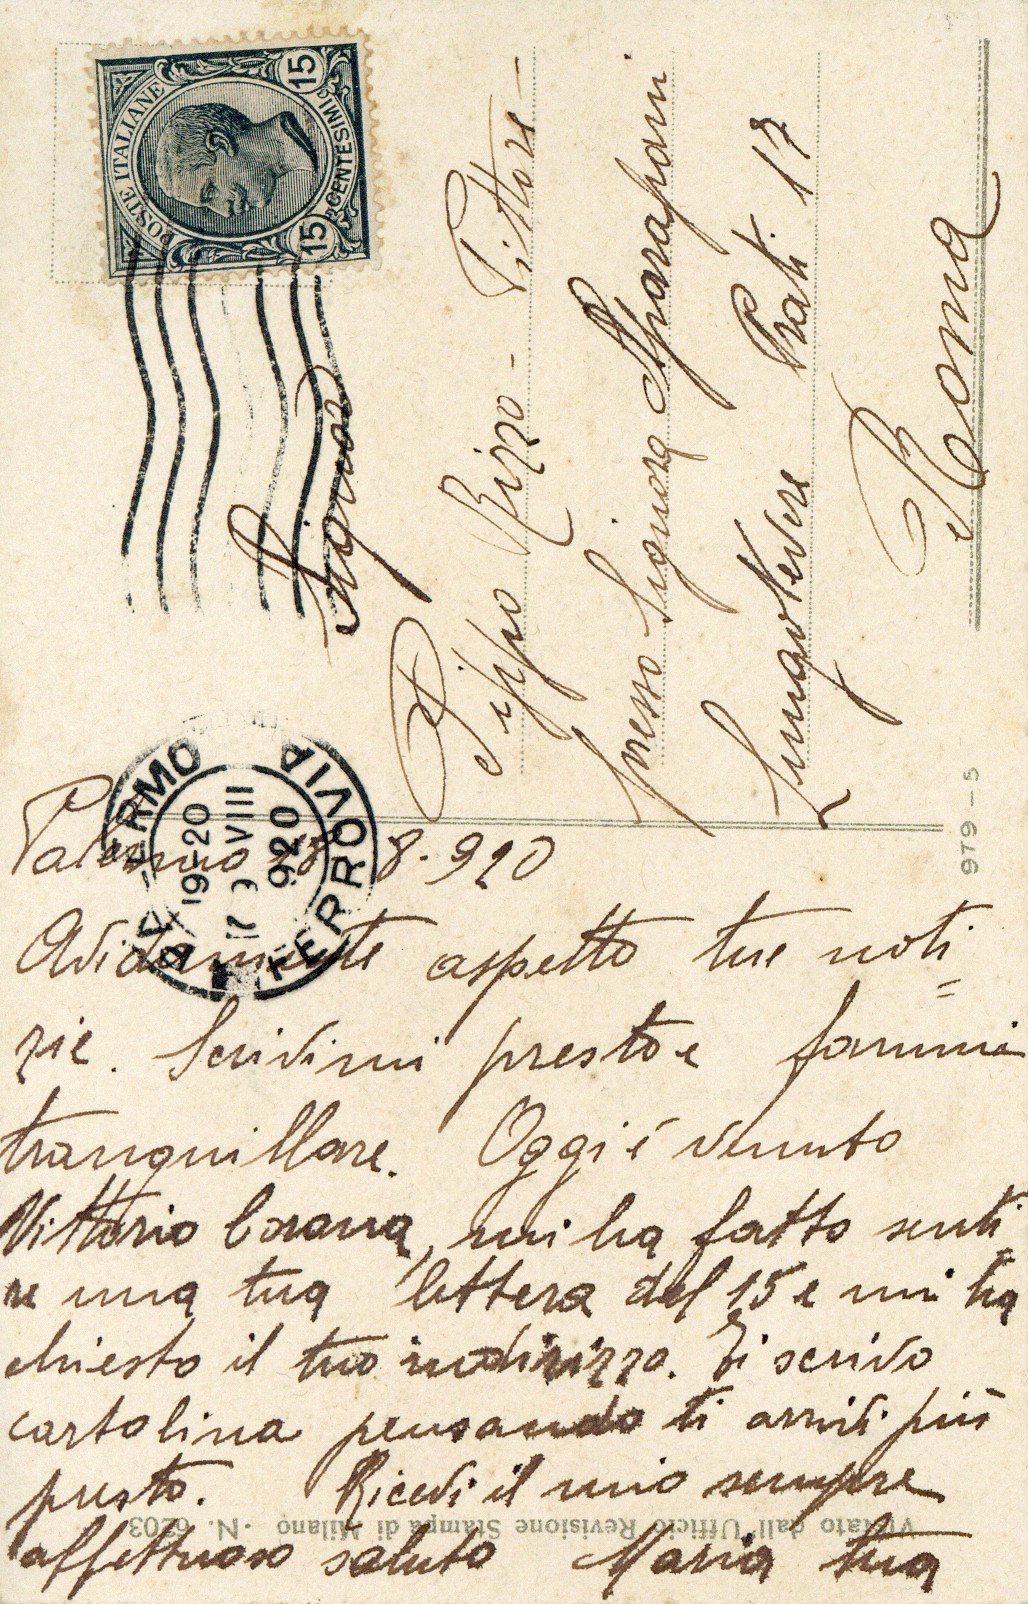 POSTE ITALIANE
15 CENTESIMI 15
Signor
Pippo Rizzo - Pittore -
presso Signora Sparapani
Lungotevere Prati. 17
Roma
PALERMO FERROVIA
19-20
VIII
920
979-5
Palermo 8. 920
Avidamente aspetto tue noti
zie. Scrivimi presto e fammi
tranquillare. Oggi è venuto
Vittorio Corona, mi ha fatto senti
re una tua lettera del 15 e mi ha
chiesto il tuo indirizzo. Ti scrivo
cartolina pensando ti arrivi più
presto. Ricevi il mio sempre
affettuoso saluto Maria tua
Vistato dall'Ufficio Revisione Stampa di Milano .N. 6203